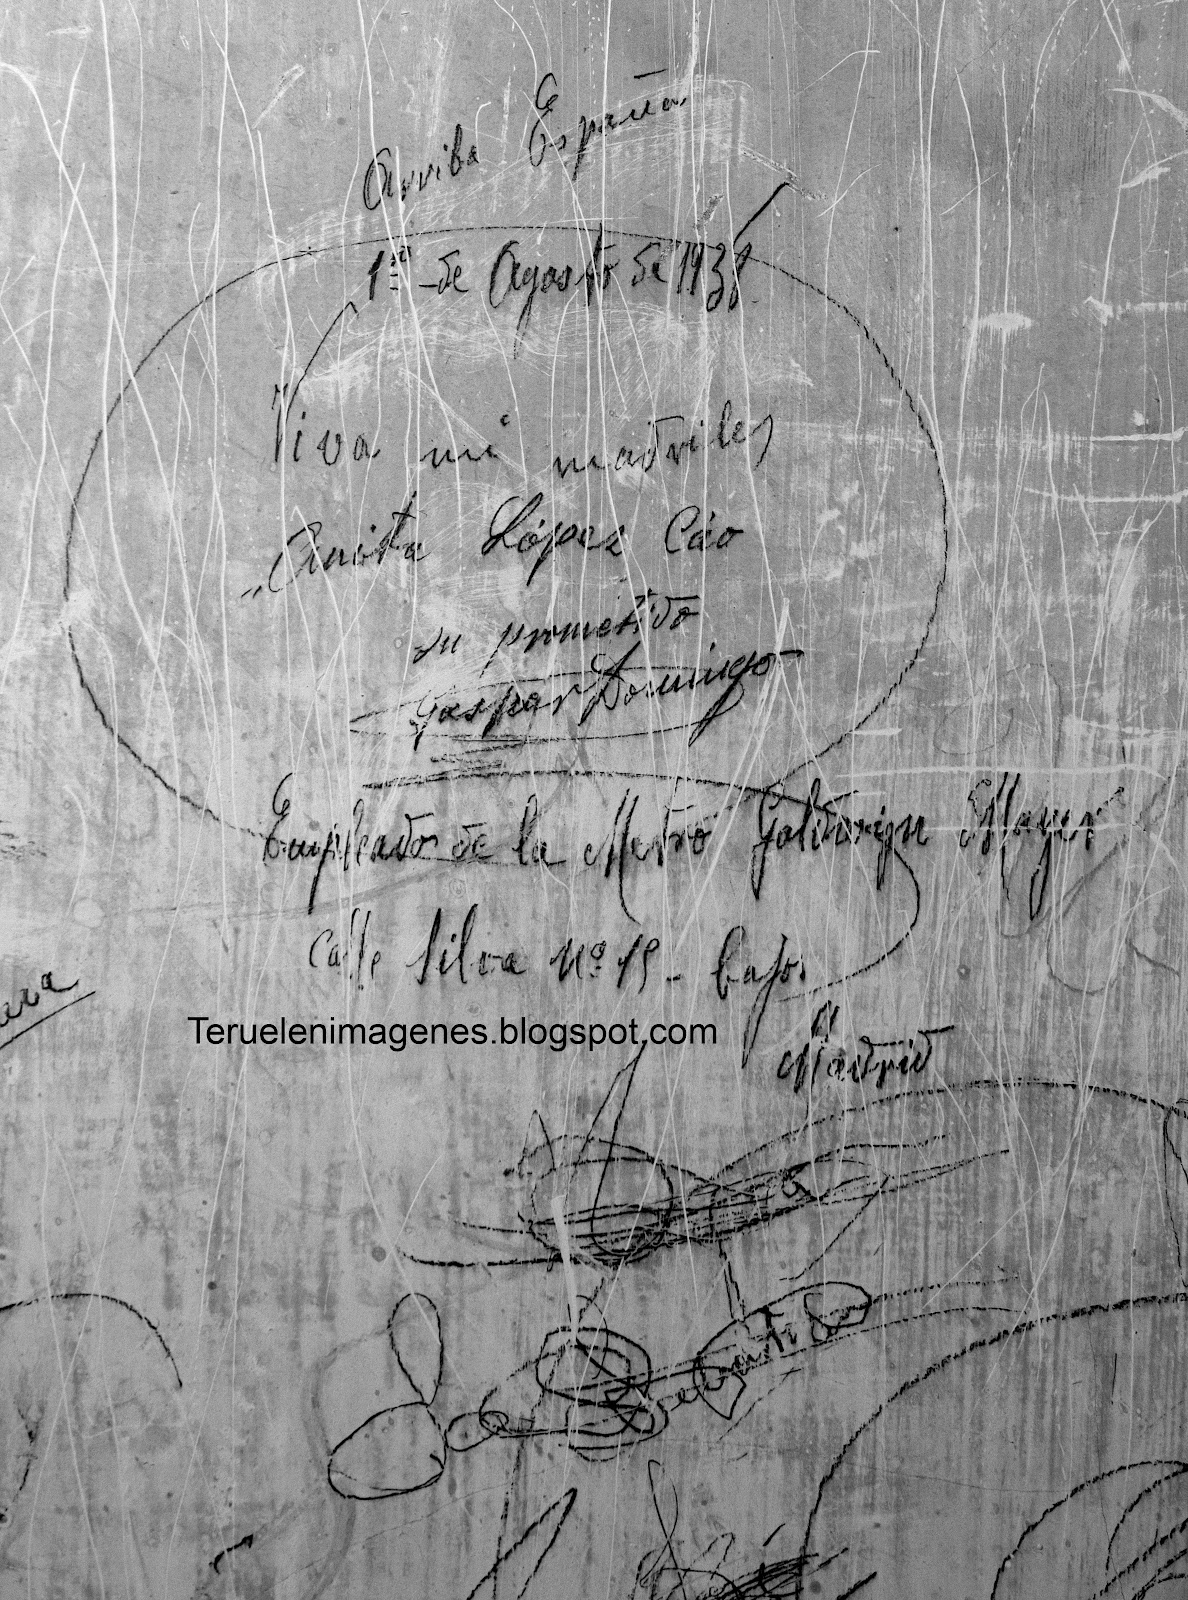 Arriba España
1º de Agosto de 1938
Viva mi madriles
Anita López Cáo
su prometido
Gaspar Domingo
Empleados de la Metro Goldwign Mayer
calle Silva Nº 15 - bajos
Madrid
Teruelenimagenes.blogspot.com